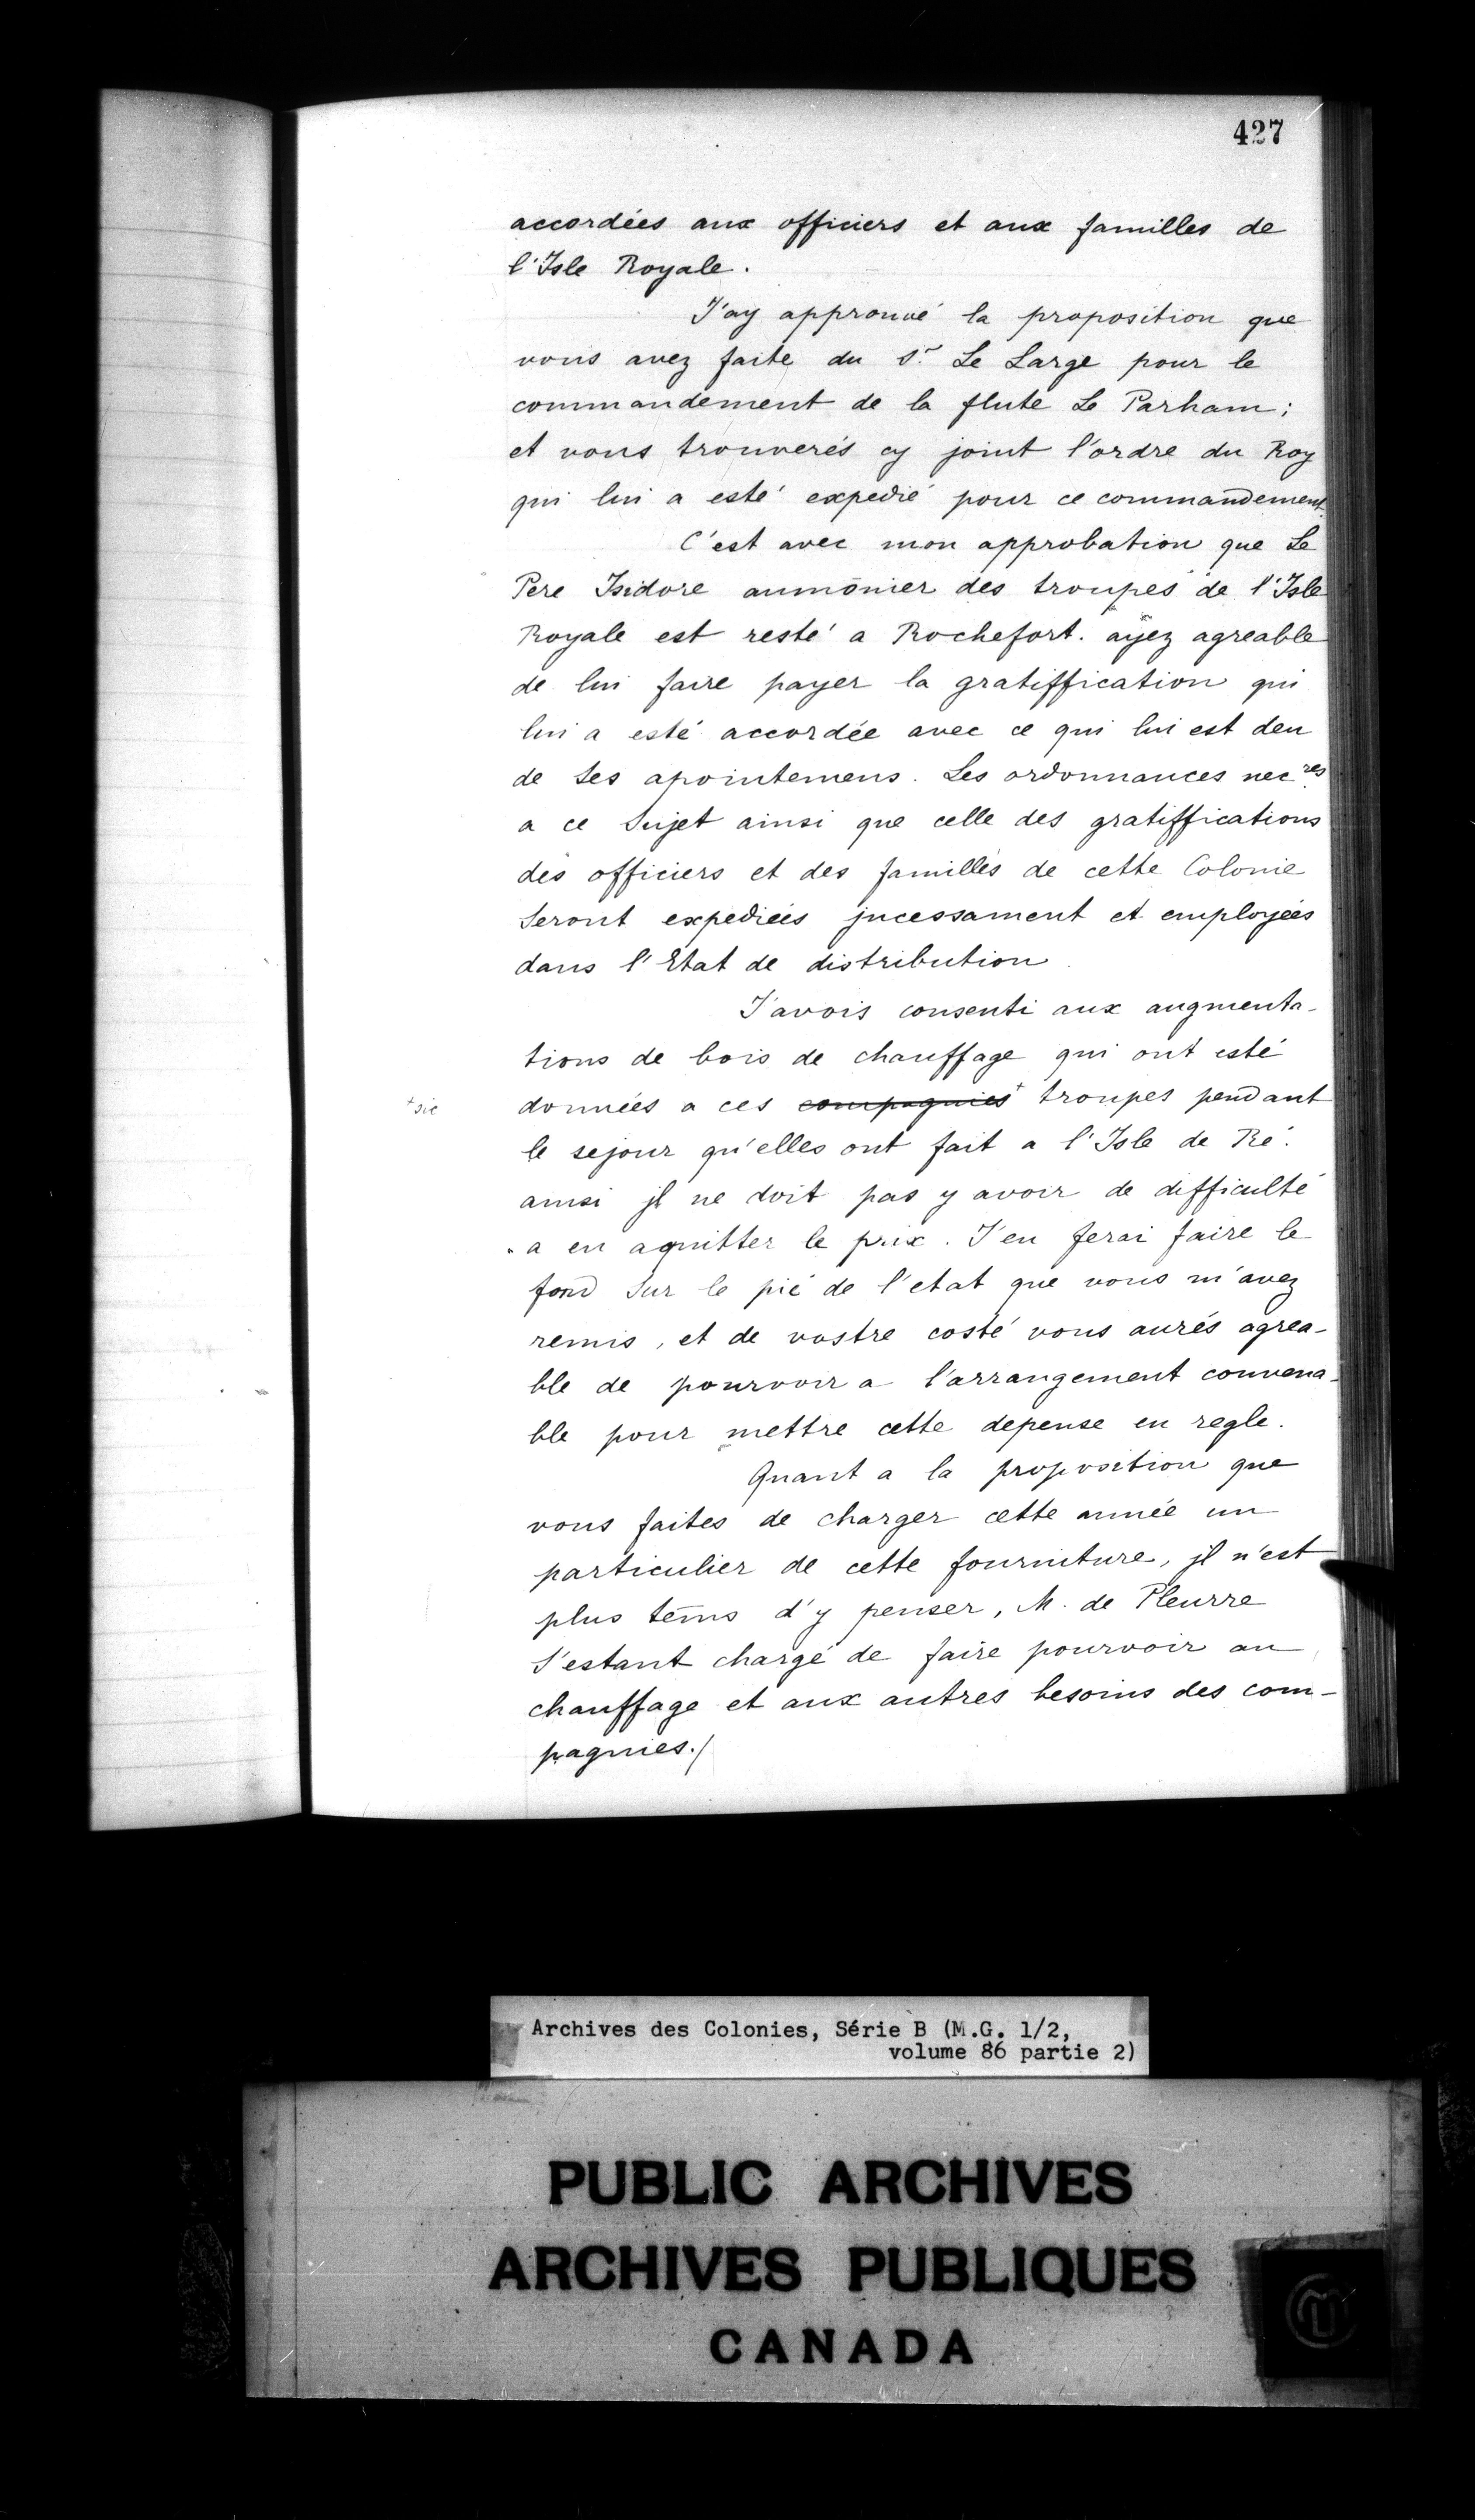 427
accordées aux officiers et aux familles de
l'Isle Royale.
J'ay approuvé la proposition que
vous avez faite du Sr. Le Large pour le
commandement de la flute Le Parham;
et vous trouverés cy joint l'ordre du Roy
qui lui a esté expedié pour ce commandement.
C'est avec mon approbation que Le
Pere Isidore aumônier des troupes de l'Isle
Royale est resté a Rochefort. ayez agreable
de lui faire payer la gratiffication qui
lui a esté accordée avec ce qui lui est deu
de Ses apointemens. Les ordonnances necres
a ce Sujet ainsi que celle des gratiffications
des officiers et des familles de cette Colonie
Seront expediées jncessament et employées
dans l'Etat de distribution
J'avois consenti aux augmenta-
tions de bois de chauffage qui ont esté
+sic données a ces compagnies+ troupes pendant
le sejour qu'elles ont fait a l'Isle de Ré.
ainsi jl ne doit pas y avoir de difficulté
a en aquitter le prix. J'en ferai faire le
fond Sur le pié de l'etat que vous m'avez
remis, et de vostre costé vous aurés agrea-
ble de pourvoir a l'arrangement convena-
ble pour mettre cette depense en regle.
Quant a la proposition que
vous faites de charger cette année un
particulier de cette fourniture, jl n'est
plus tems d'y penser, M. de Pleurre
S'estant chargé de faire pourvoir au
chauffage et aux autres besoins des com-
pagnies./
Archives des Colonies, Série B (M.G. 1/2,
volume 86 partie 2)
PUBLIC ARCHIVES
ARCHIVES PUBLIQUES
CANADA